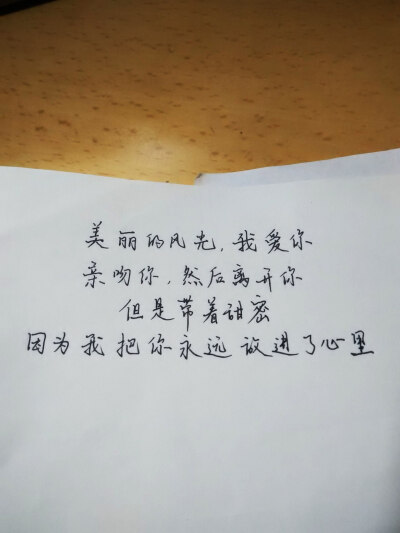 美丽的风光，我爱你
亲吻你，然后离开你
但是带着甜密
因为我把你永远放进了心里